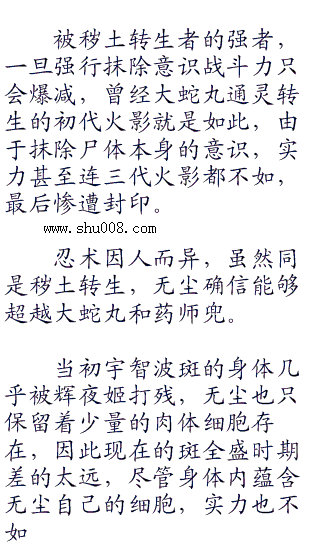 被秽土转生者的强者，
一旦强行抹除意识战斗力只
会爆减，曾经大蛇丸通灵转
生的初代火影就是如此，由
于抹除尸体本身的意识，实
力甚至连三代火影都不如，
最后惨遭封印。
www.shu008.com
忍术因人而异，虽然同
是秽土转生，无尘确信能够
超越大蛇丸和药师兜。
当初宇智波斑的身体几
乎被辉夜姬打残，无尘也只
保留着少量的肉体细胞存
在，因此现在的斑全盛时期
差的太远，尽管身体内蕴含
无尘自己的细胞，实力也不
如